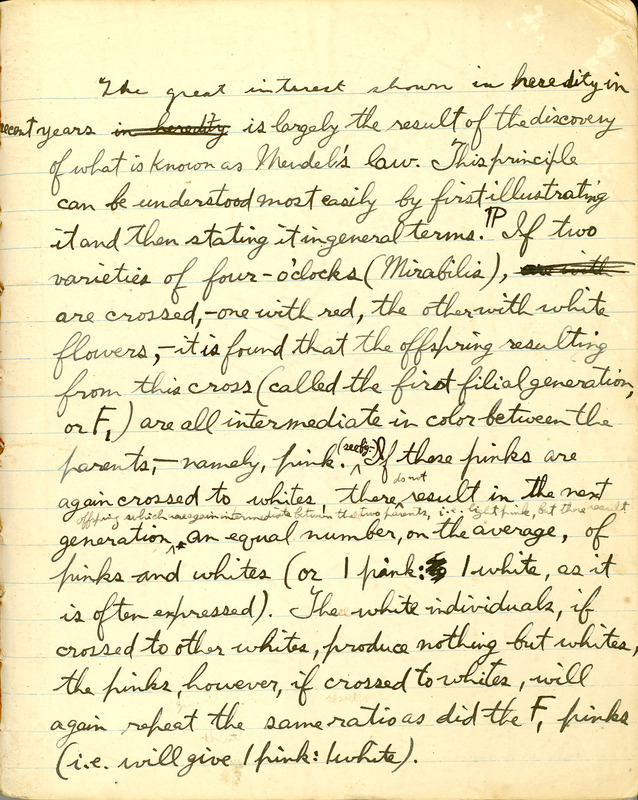 The great interest shown in heredity in
recent years in heredity is largely the result of the discovery
of what is known as Mendel's law. This principle
can be understood most easily by first illustrating
it and then stating it in general terms. ¶ If two
varieties of four-o'clocks (Mirabilis), are with
are crossed,-one with red, the other with white
flowers,-it is found that the offspring resulting
from this cross (called the first filial generation,
or F1) are all intermediate in color between the
parents,- namely, pink. (see fig. If these pinks are
do not
again crossed to whites there result in the next
offspring which are again intermediate between the two parents, i.e. light pink, but there result
generation, an equal number, on the average, of
pinks and whites (or 1 pink: 1 white, as it
is often expressed). The white individuals, if
crossed to other whites, produce nothing but whites,
the pinks, however, if crossed to whites, will
again repeat the same ratio as did the F1 pinks
(i.e. will give 1 pink: 1 white).